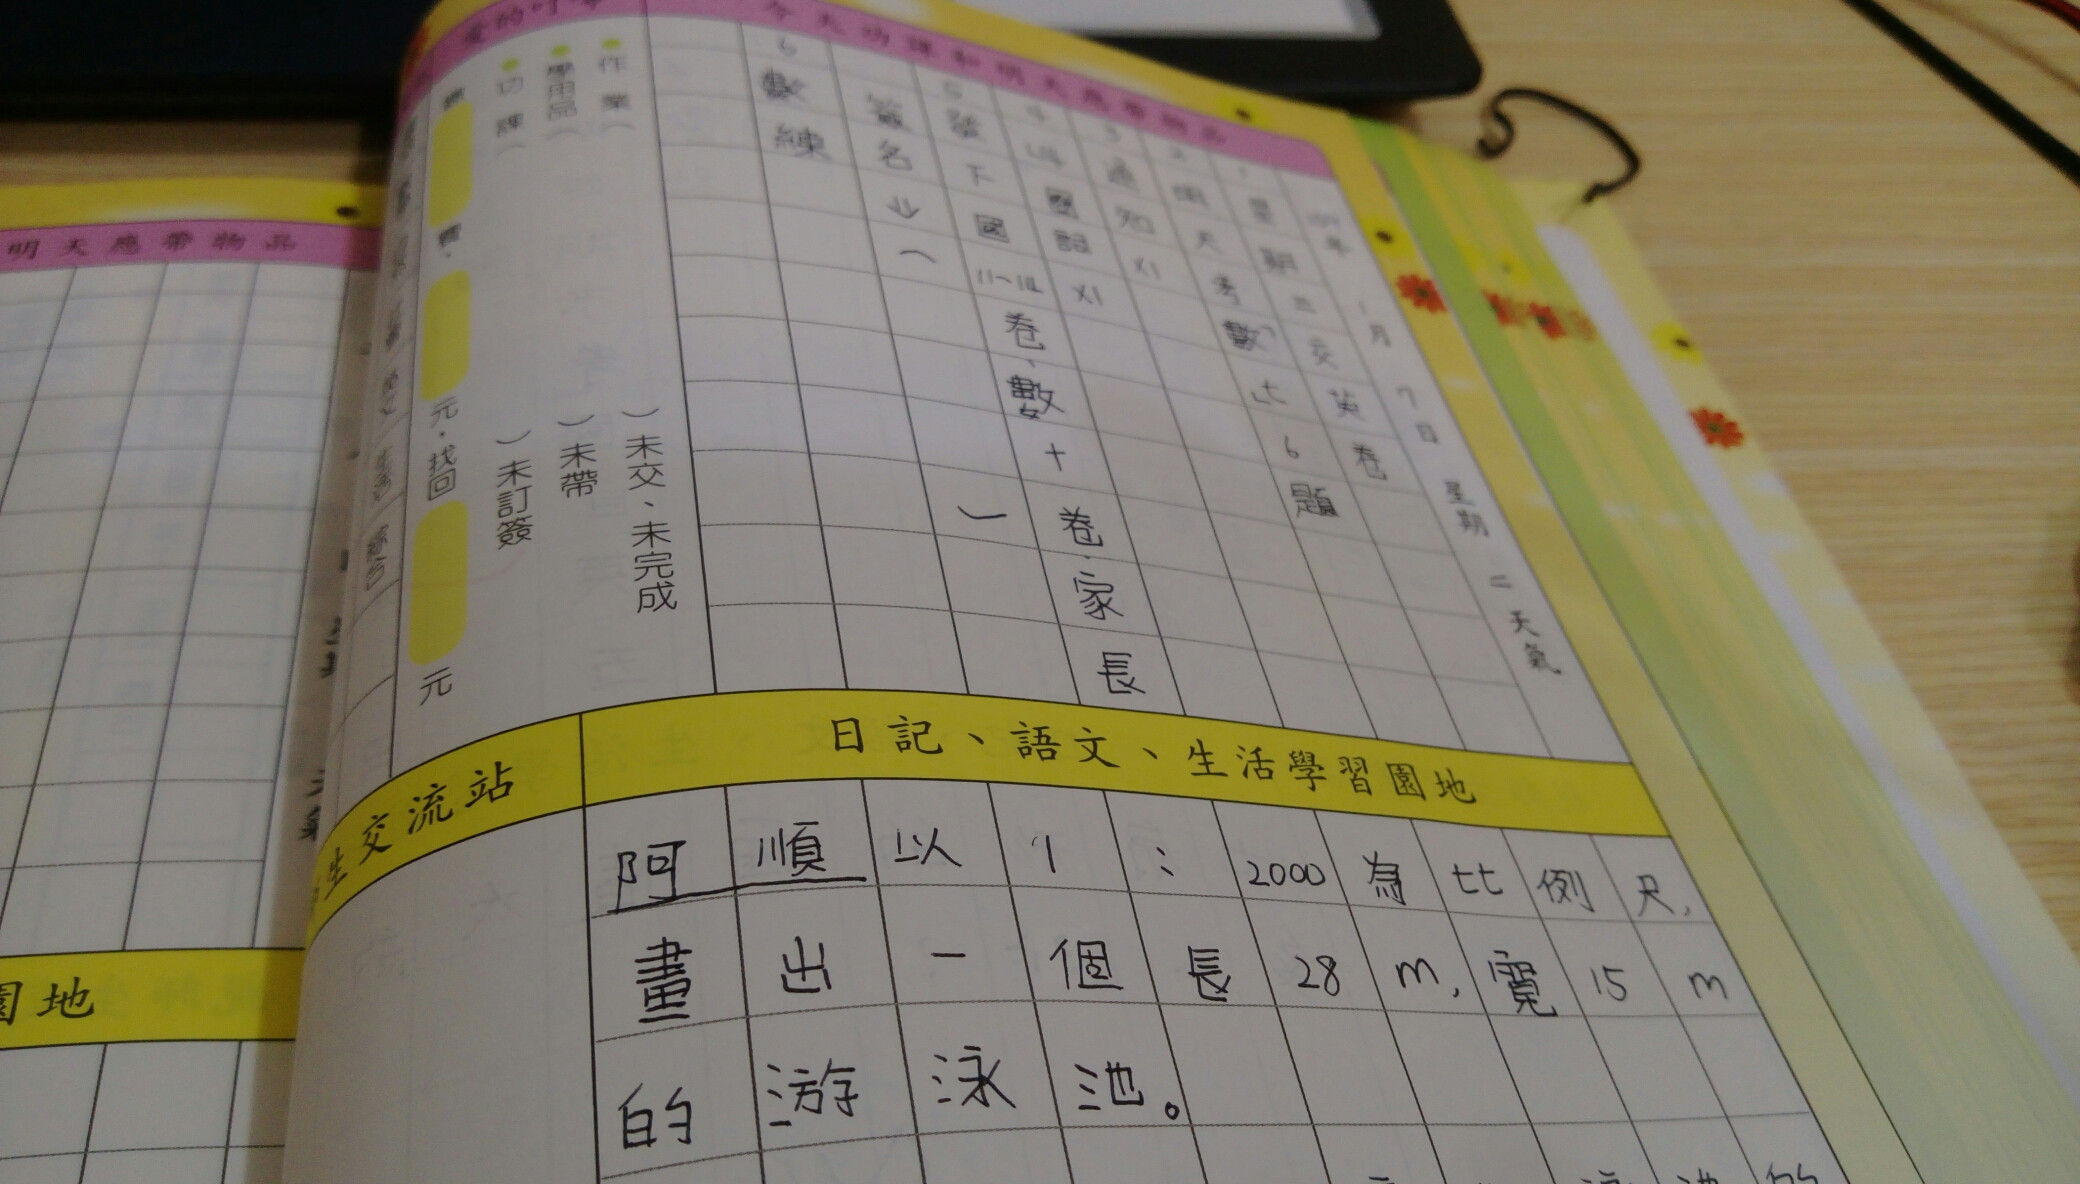 今天功課和明天應帶物品
年1月7日星期二天氣
1星期三交英卷
2明天考數
比6題
3通知x1
x1
5發下國11~12卷、數+卷、家長
簽名
6數練
作業( )未交、未完成
學用品( )未帶
功課( )未訂簽
元,找回 元
明天應帶物品
日記、語文、生活學習園地
生交流站
園地
阿順以1:2000為比例尺,
畫出一個長28m,寬15m
的游泳池。